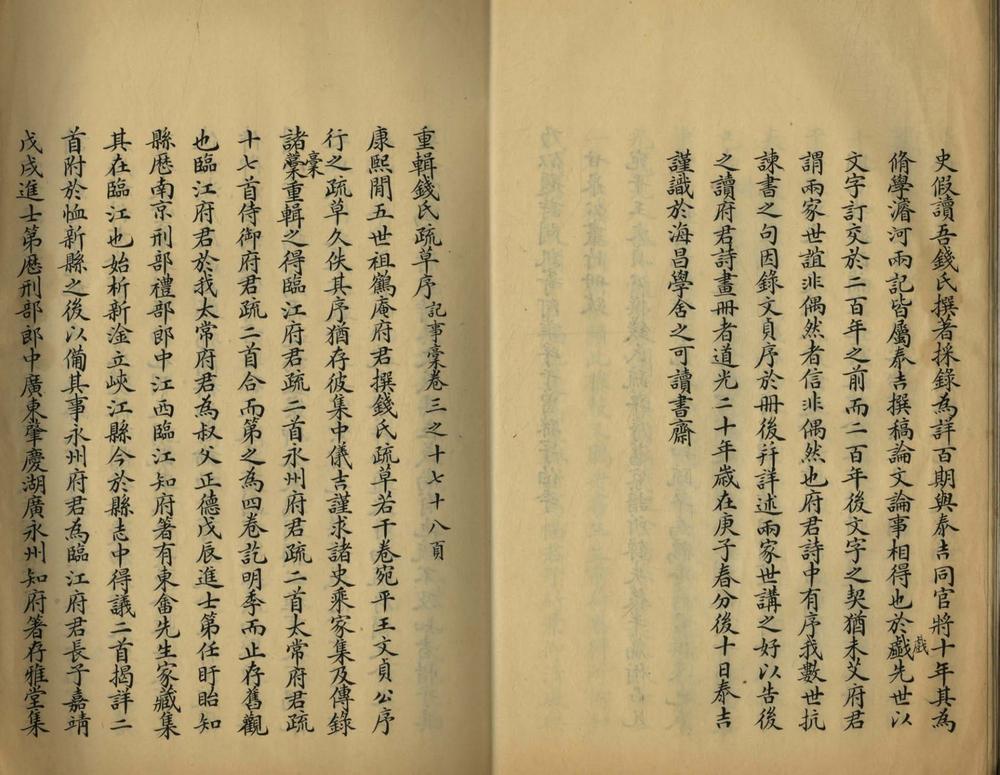 史假讀吾錢氏撰著採錄為詳百期與泰吉同官將十年其為
脩學濬河兩記皆屬泰吉撰稿論文論事相得也於戲戲先世以
文字訂交於二百年之前而二百年後文字之契猶未艾府君
謂兩家世誼非偶然者信非偶然也府君詩中有序我數世抗
諫書之句因錄文貞序於冊後幷詳述兩家世講之好以告後
之讀府君詩畫冊者道光二十年歲在庚子春分後十日泰吉
謹識於海昌學舍之可讀書齋
重輯錢氏疏草序 記事稾卷三之十七十八頁
康熙間五世祖鶴庵府君撰錢氏疏草若干卷宛平王文貞公序
行之疏草久佚其序猶存彼集中儀吉謹求諸史乘家集及傳錄
諸稾稾重輯之得臨江府君疏二首永州府君疏二首太常府君疏
十七首侍御府君疏二首合而第之為四卷訖明季而止存舊觀
也臨江府君於我太常府君為叔父正德戊辰進士第任盱眙知
縣歷南京刑部禮部郎中江西臨江知府著有東畬先生家藏集
其在臨江也始析新淦立峽江縣今於縣志中得議二首揭詳二
首附於恤新縣之後以備其事永州府君為臨江府君長子嘉靖
戊戌進士第歷刑部郎中廣東肇慶湖廣永州知府著存雅堂集